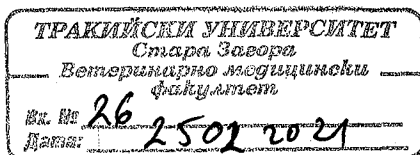 ТРАКИЙСКИ УНИВЕРСИТЕТ
Стара Загора
Ветеринарно медицински
факултет
Вх. № 26
Дата: 25 02 2021